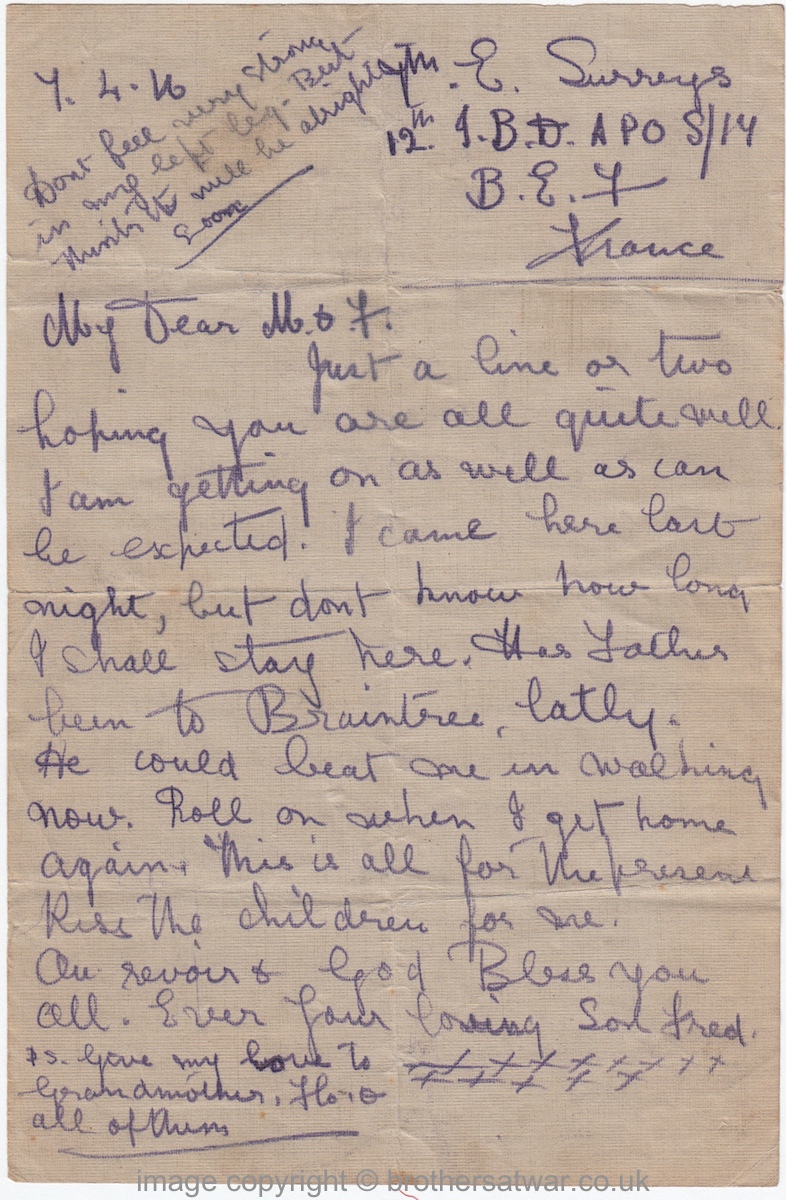 7. 4. 16
7th. E. Surreys
12th I.B.D. A P O S/14
B. E. F
France
Dont feel very strong
in my left leg. But
thinks it will be alright
soon
My Dear M. & F.
Just a line or two
hoping you are all quite well.
I am getting on as well as can
be expected. I came here last
night, but dont know how long
I shall stay here. Has Father
been to Braintree, latly.
He could beat me in walking
now. Roll on when I get home
again. This is all for the present
Kiss the children for me.
Au revoir & God Bless you
all. Ever Your loving Son Fred.
P.S. Give my love to
Grandmother, Flo. &
all of them
x x x x x x x x
x x x x x
image copyright © brothersatwar.co.uk